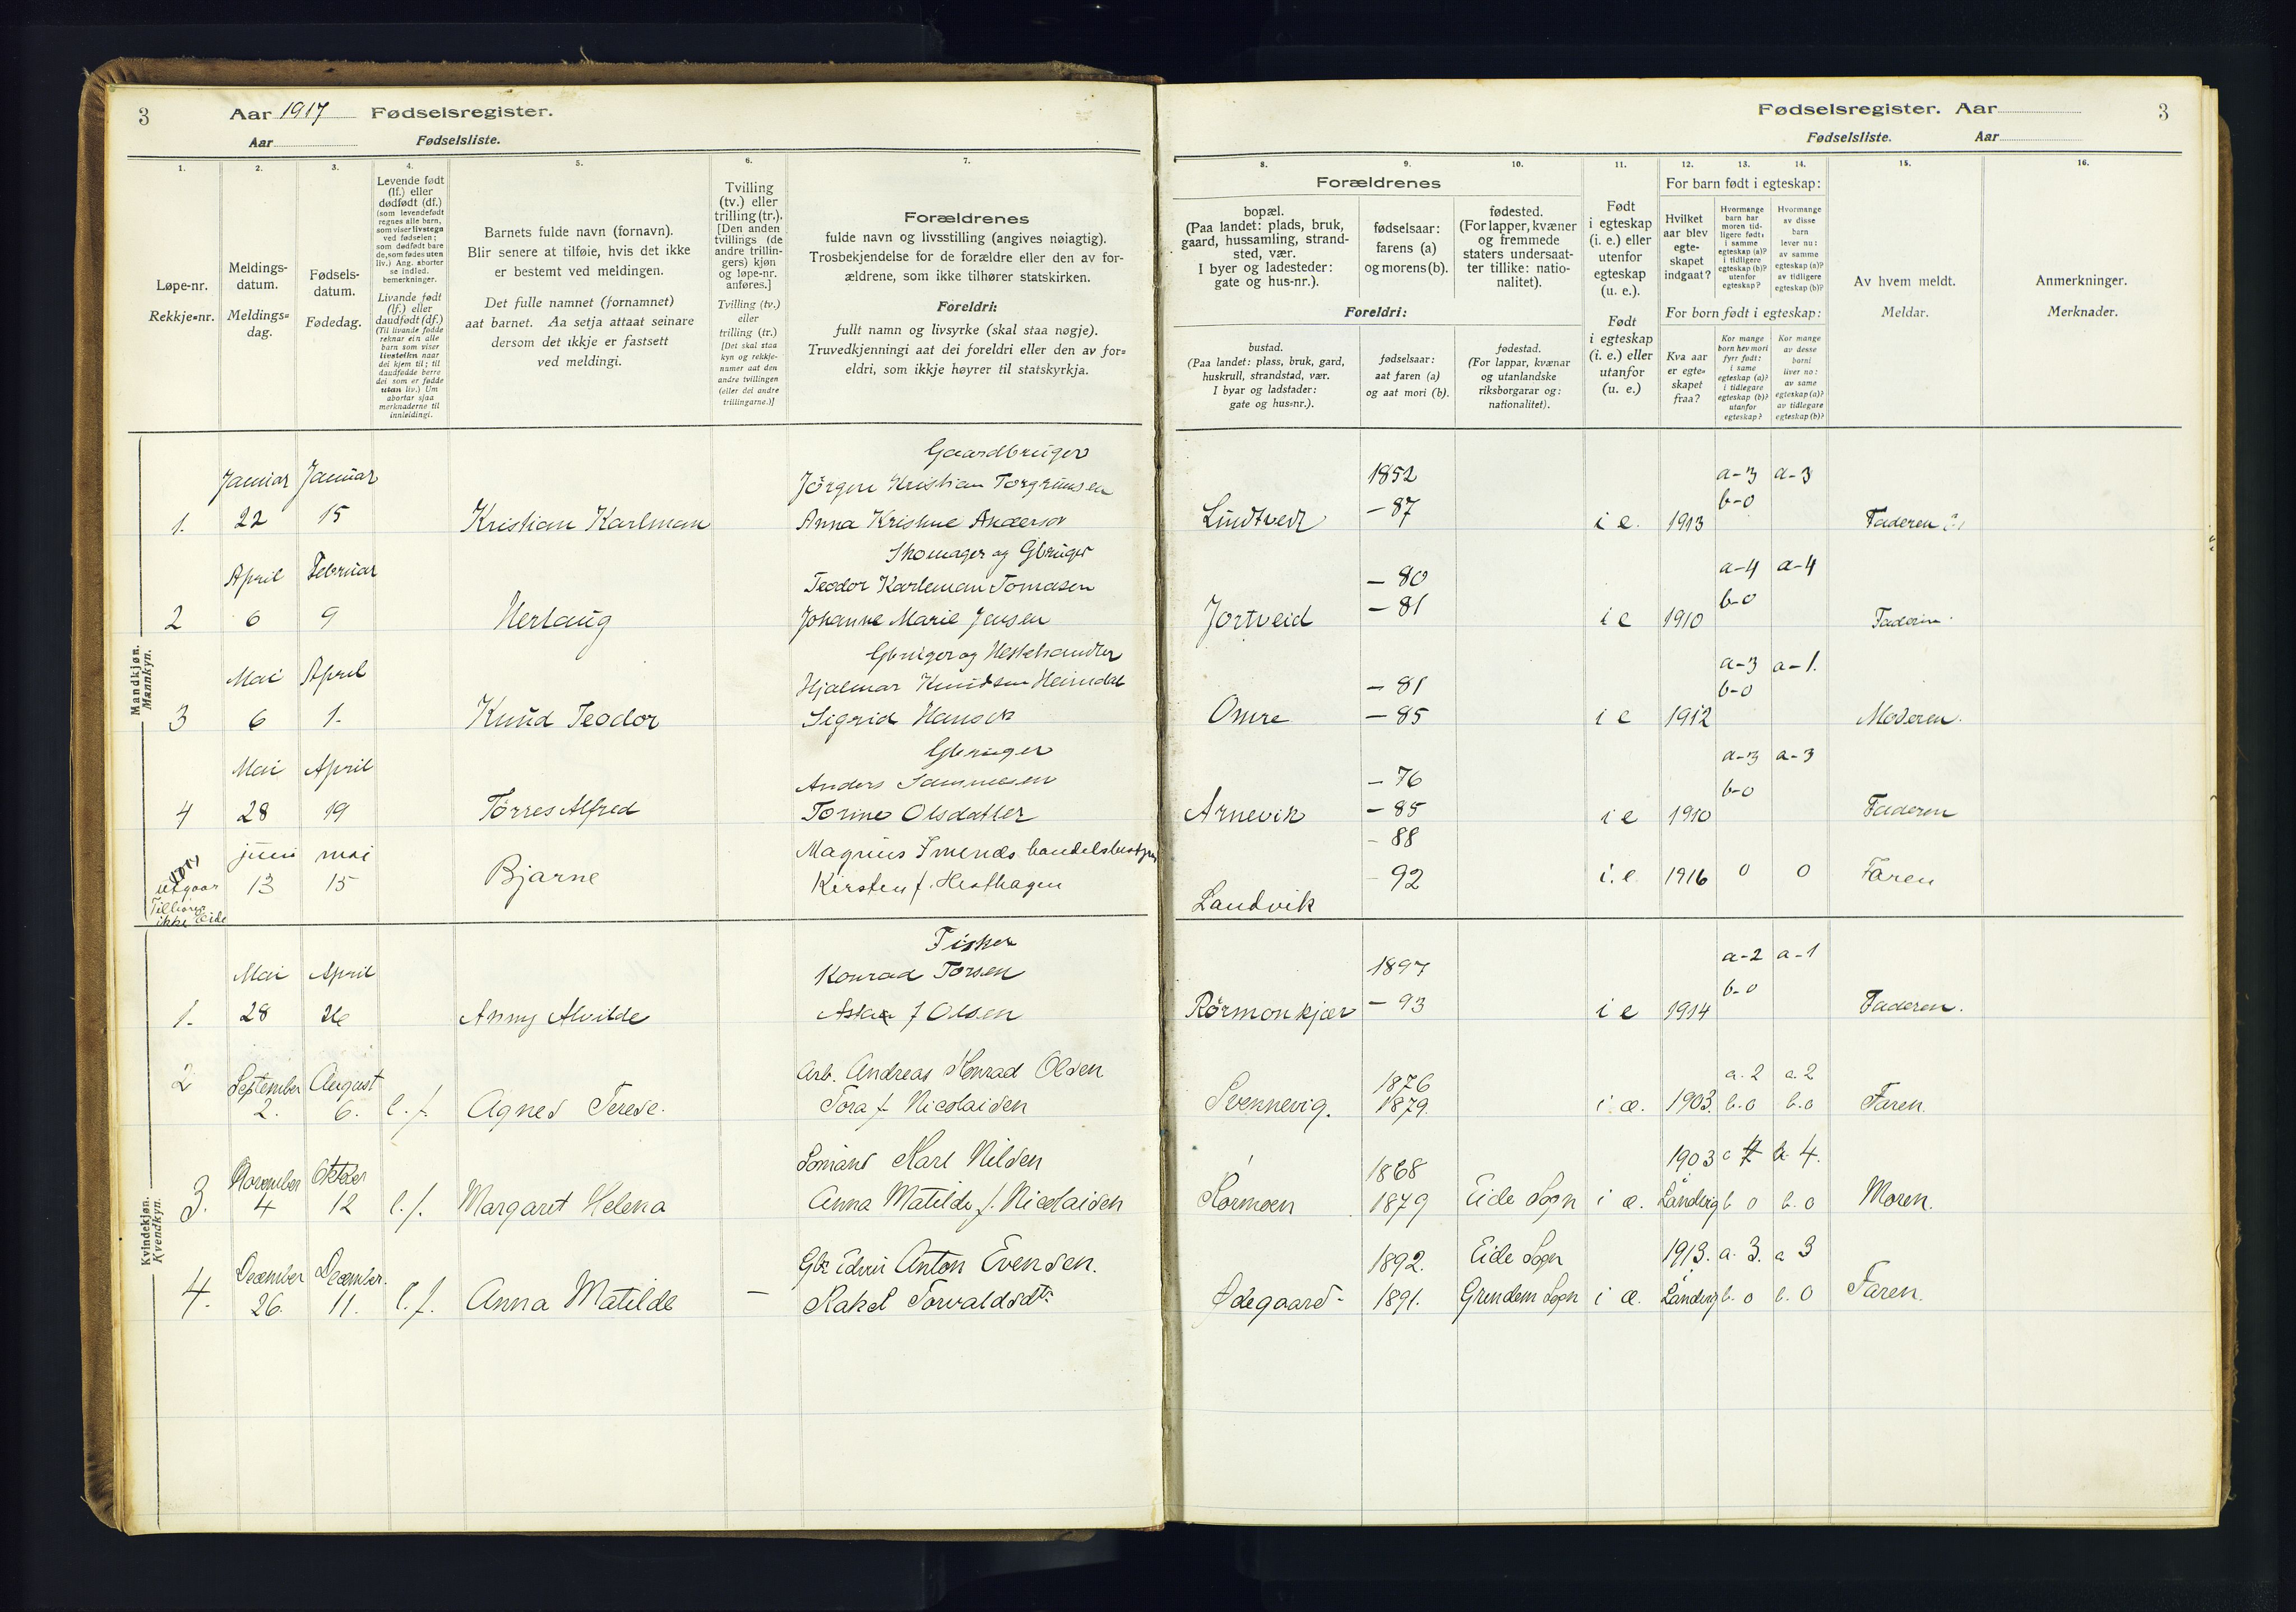 3 Aar 1917 Fødselsregister.
Aar Fødselsliste.
Fødselsregister. Aar 3
Fødselsliste. Aar
1. 2. 3. 4. 5. 6. 7.
Løpe-nr.
Rekkje=nr.
Meldings-
datum.
Meldings=
dag.
Fødsels-
datum.
Fødedag.
Levende født
(lf.) eller
dødfødt (df.)
(som levendefødt
regnes alle barn,
som viser livstegn
ved fødselen;
som dødfødt bare
de, som fødes uten
liv.) Ang. aborter
se indled.
bemerkninger.
Livande født
(lf.) eller
daudfødt (df.)
(Til livande fødde
reknar ein alle
barn som viser
livsteikn naar
dei kjem til; til
daudfødde berre
dei som er fødde
utan liv.) Um
abortar sjaa
merknaderne til
innleidingi.
Barnets fulde navn (fornavn).
Blir senere at tilføie, hvis det ikke
er bestemt ved meldingen.
Det fulle namnet (fornamnet)
aat barnet. Aa setja attaat seinare
dersom det ikkje er fastsett
ved meldingi.
Tvilling
(tv.) eller
trilling (tr.).
[Den anden
tvillings (de
andre trillin-
gers) kjøn
og løpe-nr.
anføres.]
Tvilling (tv.)
eller
trilling (tr.)
[Det skal staa
kyn og rekkje-
numer aat den
andre tvillingen
(eller dei andre
trillingarne.)]
Forældrenes
fulde navn og livsstilling (angives nøiagtig).
Trosbekjendelse for de forældre eller den av for-
ældrene, som ikke tilhører statskirken.
Foreldri:
fullt namn og livsyrke (skal staa nøgje).
Truvedkjenningi aat dei foreldri eller den av for=
eldri, som ikkje høyrer til statskyrkja.
8. 9. 10. 11. 12. 13. 14. 15. 16.
Forældrenes
bopæl.
(Paa landet: plads, bruk,
gaard, hussamling, strand-
sted, vær.
I byer og ladesteder:
gate og hus-nr.).
fødselsaar:
farens (a)
og morens (b).
fødested.
(For lapper, kvæner
og fremmede
staters undersaat-
ter tillike: natio-
nalitet).
Foreldri:
bustad.
(Paa landet: plass, bruk, gard,
huskrull, strandstad, vær.
I byar og ladstader:
gate og hus=nr.).
fødselsaar:
aat faren (a)
og aat mori (b).
fødestad.
(For lappar, kvænar
og utanlandske
riksborgarar og:
nationalitet).
Født
i egteskap
(i. e.) eller
utenfor
egteskap
(u. e.).
Født
i egteskap
(i. e.) eller
utanfor
(u. e.)
For barn født i egteskap:
Hvilket
aar blev
egte-
skapet
indgaat?
Hvormange
barn har
moren tid-
ligere født:
i samme
egteskap (a)?
i tidligere
egteskap (b)?
utenfor
egteskap?
Hvormange
av disse
barn
lever nu:
av samme
egteskap (a)?
av tidligere
egteskap (b)?
For born født i egteskap:
Kva aar
er egte=
skapet
fraa?
Kor mange
born hev mori
fyrr født:
i same
egteskap (a)?
i tidlegare
egteskap (b)?
utanfor
egteskap?
Kor mange
av desse
borni
liver no:
av same
egteskap (a)?
av tidlegare
egteskap (b)?
Av hvem meldt.
Meldar.
Anmerkninger.
Merknader.
Mandkjøn.
Mannkyn.
Gaardbruger
Januar Januar Jørgen Kristian Torgrimsen 1852 a-3 a-3
1. 22 15 Kristian Karlman Anna Kristine Andersen Lindtveit -87 b-0 i e. 1913 Faderen
Skomager og Gbruger
April Februar Teodor Karleman Tomasen - 80 a-4 a-4
2 6 9 Herlaug Johanne Marie Jensen Jortveid - 81 b-0 i e 1910 Faderen.
Gbruger og Hestehandler
Mai April Hjalmar Knudsen Heimdal - 81 a-3 a-1.
3 6 1. Knud Teodor Sigrid Hansen Omre - 85 b-0 i e 1912 Moderen.
Gbruger
Mai April Anders - 76 a-3 a-3
4 28 19 Torres Alfred Torine Olsdatter Arnevik - 85 b-0 i e 1910 Faderen
juni mai Magnus handelsbestyrer - 88
utgaar 13 15 Bjarne Kirsten f. Hesthagen Landvik 92 i. e. 1916 0 0 Faren
Tilhører
ikke Eide
Kvindekjøn.
Kvendkyn.
Fisker
Mai April Konrad Torsen 1897 a-2 a-1
1. 28 26 Anny Alvilde Aslaug f Olsen Rørmonkjær - 93 b-0 i e 1914 Faderen.
2 September August Arb. Andreas Konrad Olsen 1876 a. 2 a. 2
2. 6. l. f. Agnes Terese. Tora f. Nicolaisen Svennevig. 1879. i. æ. 1903. b. 0 b. 0 Faren.
November Oktober Sømand Karl Nilsen 1868 1903 a 4.
3. 4 12 l. f. Margaret Helena Anna Matilde f. Nicolaisen Hørmoen 1879 Eide Sogn i æ. Landvig b 0 b. 0 Moren.
December December. Gbr. Edvin Anton Evensen. 1892. Eide Sogn 1913. a. 3. a 3
4. 26. 11. l. f. Anna Matilde — Rakel Torvaldsdtr. Ødegaard 1891. Grindem Sogn i æ. Landvig b. 0 b. 0 Faren.